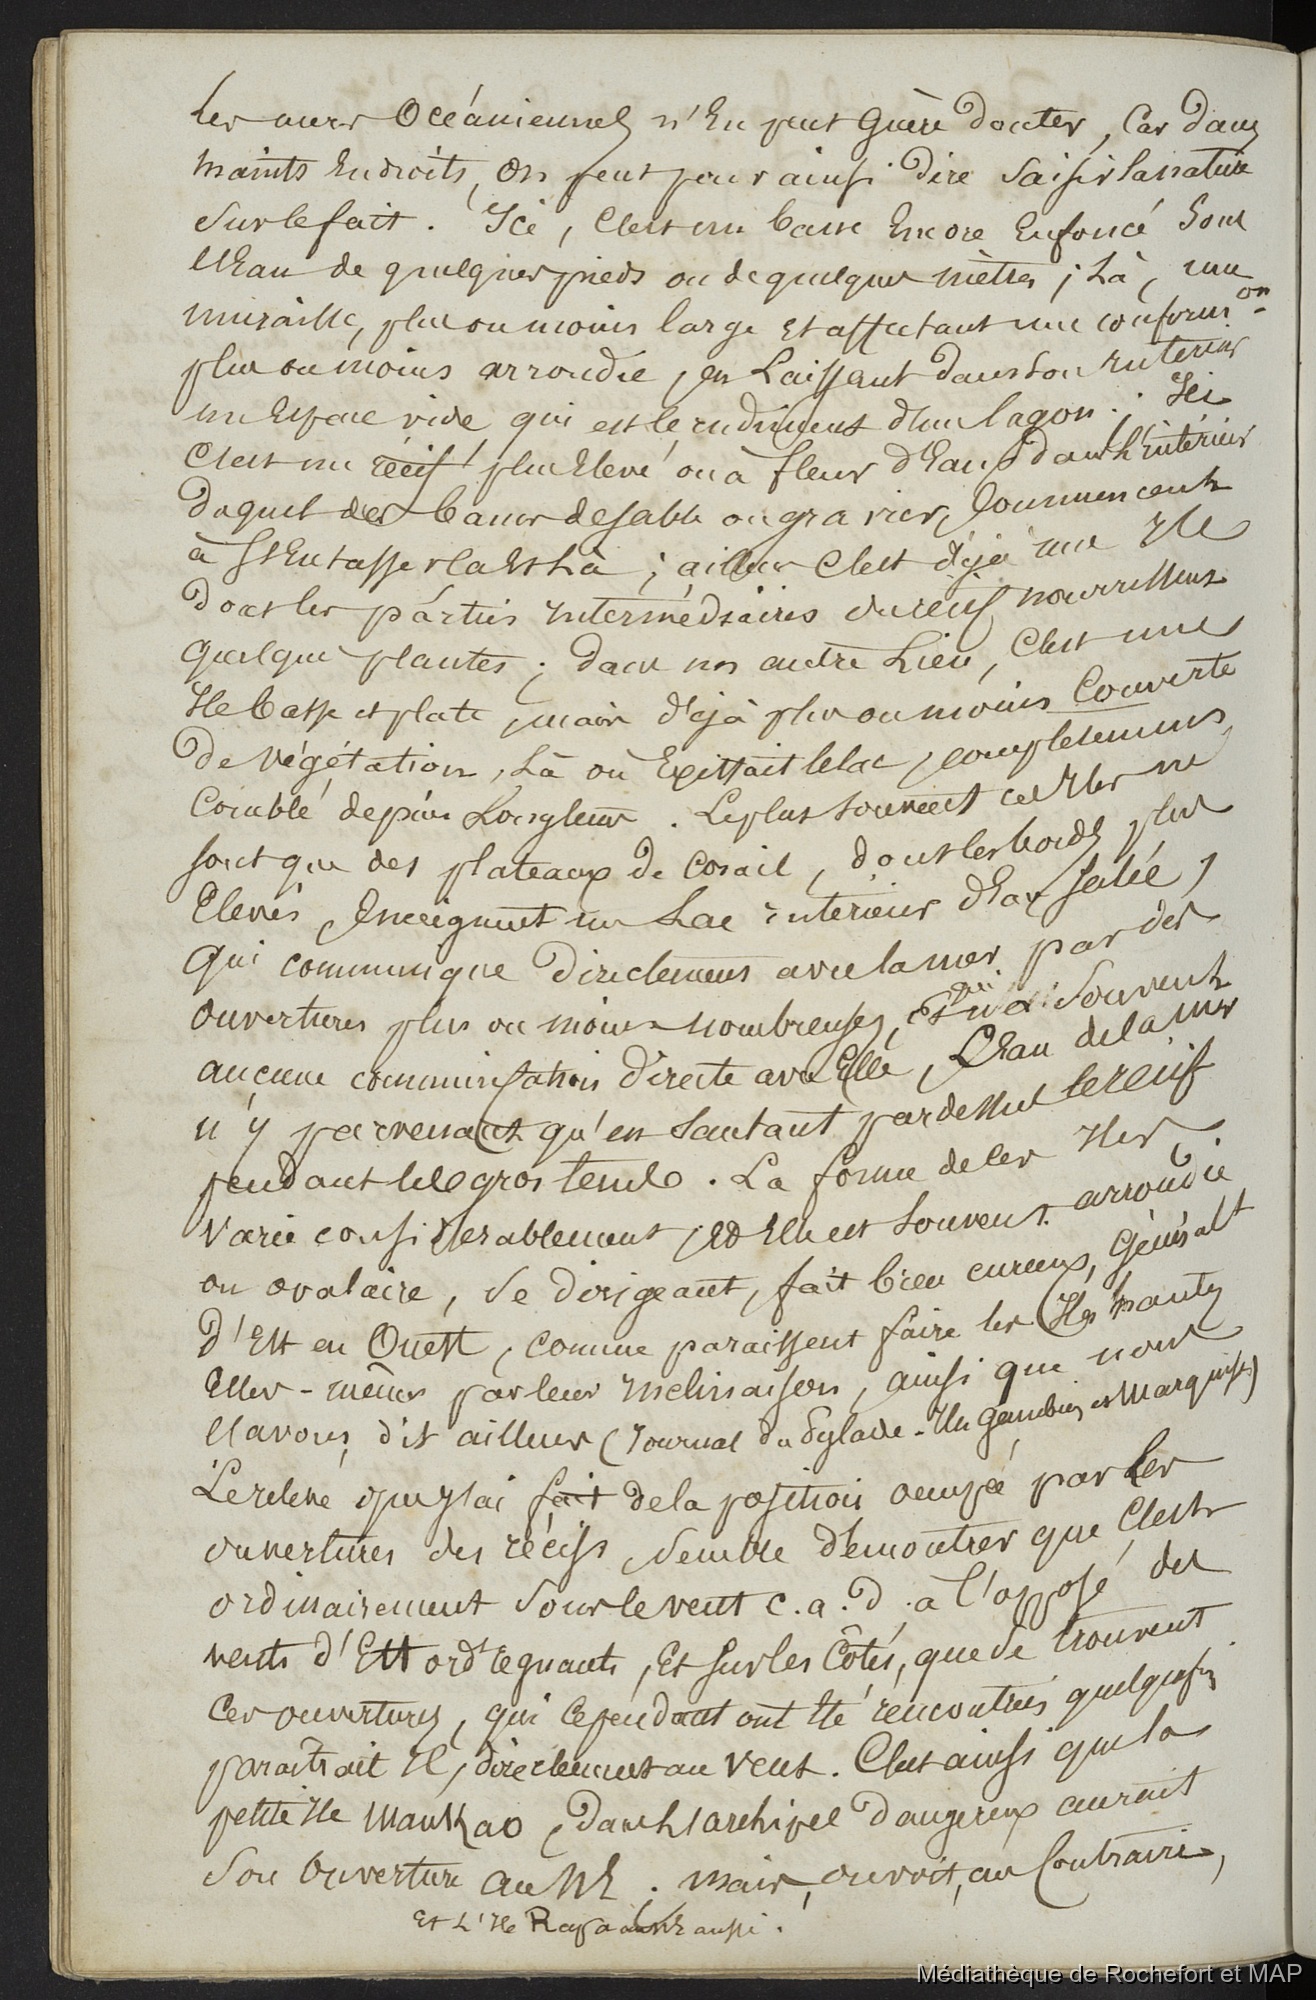 les mers Océaniennes n'En peut Guère douter, Car dans
maints Endroits, On peut pour ainsi dire Saisir la nature
Sur le fait. Ici, C'est un banc Encore Enfoncé Sous
l'Eau de quelques pieds ou de quelques mètres; Là, une
muraille, plus ou moins large et affectant une conform.on
plus ou moins arrondie, en Laissant dans son intérieur
un Espace vide qui est le rudiment d'un lagon. Ici
C'est un récif plus Elevé ou à fleur d'Eau, dans l'intérieur
duquel des bancs de sable ou gravier, Commencent
à s'Entasser là Et Là; ailleurs C'est déjà une Ile
dont les parties intermédiaires du récif nourrissent
quelques plantes; dans un autre Lieu, C'est une
Ile basse et plate, mais déjà plus ou moins Couverte
de végétation, Là où Existait le lac, complètement
Comblé depuis Longtems. Le plus souvent ces Iles ne
sont que des plateaux de corail, dont les bords plus
Elevés, Enceignent un Lac intérieur d'Eau salée,
qui communique directement avec la mer par des
ouvertures plus ou moins nombreuses, Et qui n'a Souvent
aucune communication directe avec Elle, L'Eau de la mer
n'y parvenant qu'en sautant par dessus le récif
pendant les gros tems. La forme de ces Iles
varie considérablement, Et Elle est souvent arrondie
ou ovalaire, se dirigeant, fait bien curieux, généralt
d'Est en Ouest, comme paraissent faire les Iles hautes
Elles-mêmes par leur inclinaison, ainsi que nous
l'avons dit ailleurs (Journal du Sylade - Iles Gambier et Marquises)
Le relevé que j'ai fait de la position occupée par les
ouvertures des récifs, semble démontrer que C'est
ordinairement Sous le vent c.a.d. à l'opposé des
vents d'Est ord régnants, Et sur les Côtés, que se trouvent
Ces ouvertures, qui cependant ont Eté rencontrées quelquefois,
paraîtrait-Il, directement au Vent. C'est ainsi que la
petite Ile, dans l'archipel dangereux aurait
Son Ouverture au NE. Mais, on voit, au Contraire,
Et L'Ile Rapa aussi.
Médiathèque de Rochefort et MAP